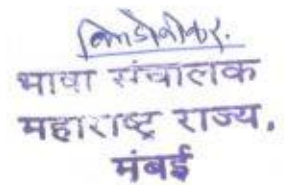 भाषा संचालक
महाराष्ट्र राज्य,
मुंबई